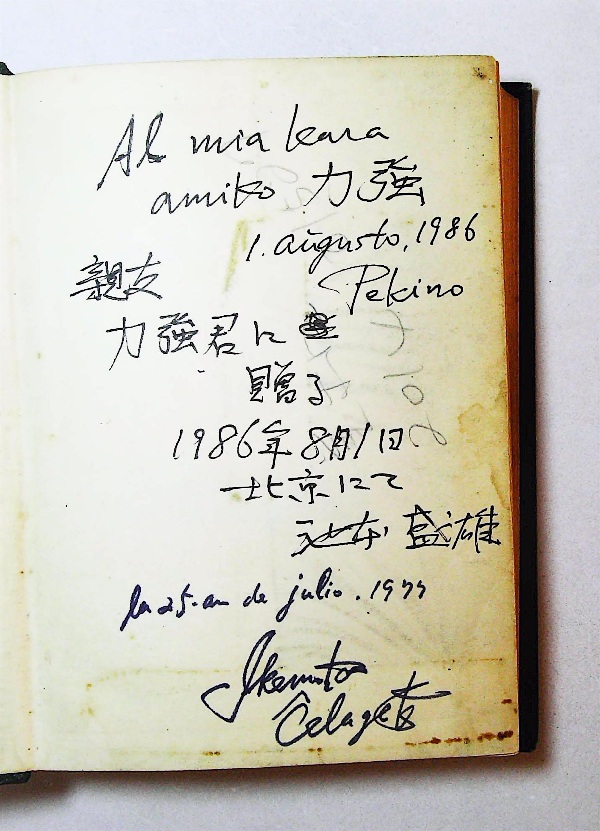 Al mia kara
amiko 力強
1. aŭgusto, 1986
Pekino
親友
力強君に
贈る
1986年8月1日
北京にて
池本 盛雄
la 25-an de julio. 1977
Ikemoto